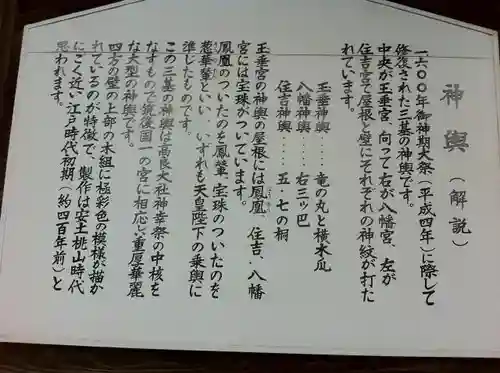 神輿（解説）
一六〇〇年御神期大祭（平成四年）に際して
修復された三基の神輿です。
中央が玉垂宮、向って右が八幡宮、左が
住吉宮で屋根と壁にそれぞれの神紋が打た
れています。
玉垂神輿‥‥竜の丸と横木瓜
八幡神輿‥‥右三ッ巴
住吉神輿‥‥五・七の桐
玉垂宮の神輿の屋根には鳳凰、住吉・八幡
宮には宝珠がついています。
鳳凰のついたのを鳳輦、宝珠のついたのを
葱華輦といい、いずれも天皇陛下の乗輿に
準じたものです。
この三基の神輿は高良大社神幸祭の中核を
なすもので筑後国一の宮に相応しい重厚華麗
な大型の神輿です。
四方の壁の上部の木組に極彩色の模様が描か
れているのが特徴で、製作は安土桃山時代
にごく近い江戸時代初期（約四百年前）と
思われます。